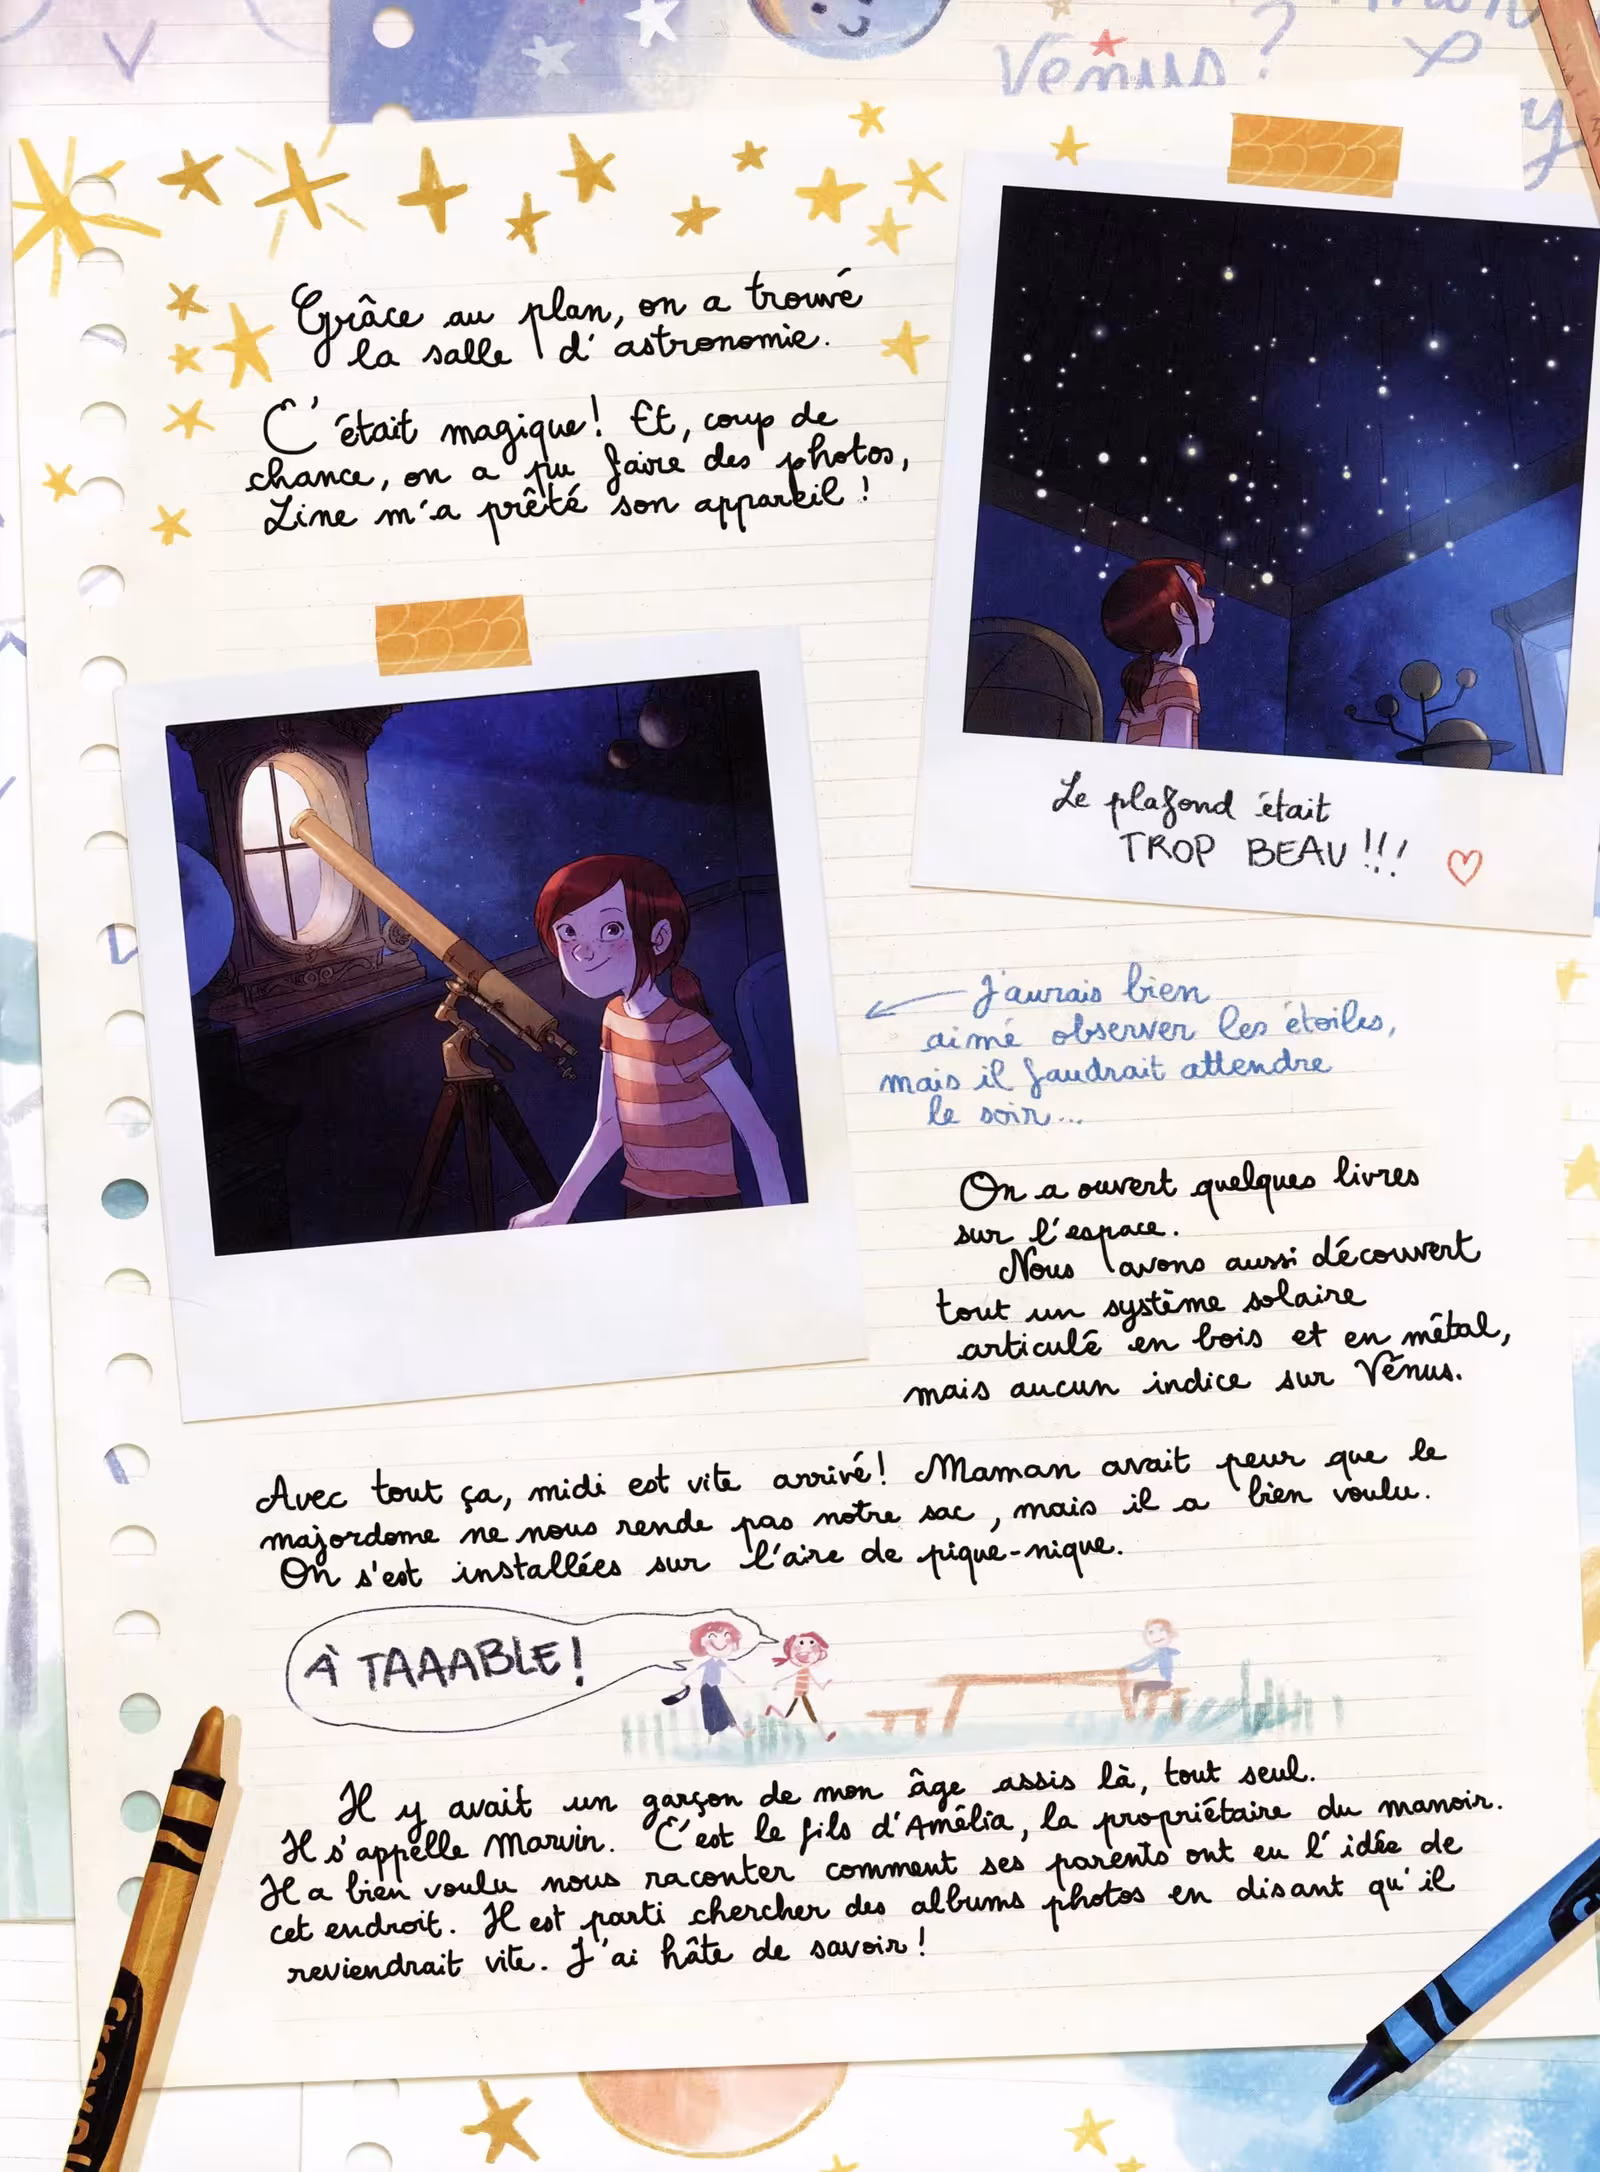 Vénus ?
y
Grâce au plan, on a trouvé
la salle d'astronomie.
C'était magique ! Et, coup de
chance, on a pu faire des photos,
Line m'a prêté son appareil !
Le plafond était
TROP BEAU !!!
J'aurais bien
aimé observer les étoiles,
mais il faudrait attendre
le soir...
On a ouvert quelques livres
sur l'espace.
Nous avons aussi découvert
tout un système solaire
articulé en bois et en métal,
mais aucun indice sur Vénus.
Avec tout ça, midi est vite arrivé ! Maman avait peur que le
majordome ne nous rende pas notre sac, mais il a bien voulu.
On s'est installées sur l'aire de pique-nique.
À TAAABLE !
Il y avait un garçon de mon âge assis là, tout seul.
Il s'appelle Marvin. C'est le fils d'Amélia, la propriétaire du manoir.
Il a bien voulu nous raconter comment ses parents ont eu l'idée de
cet endroit. Il est parti chercher des albums photos en disant qu'il
reviendrait vite. J'ai hâte de savoir !